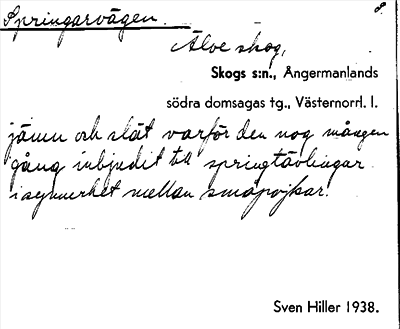 Springarvägen. 8.
Älve skog,
Skogs s:n., Ångermanlands
södra domsagas tg., Västernorrl. l.
jämn och slät varför den nog mången
gång inbjudit till springtävlingar
i synnerhet mellan småpojkar.
Sven Hiller 1938.